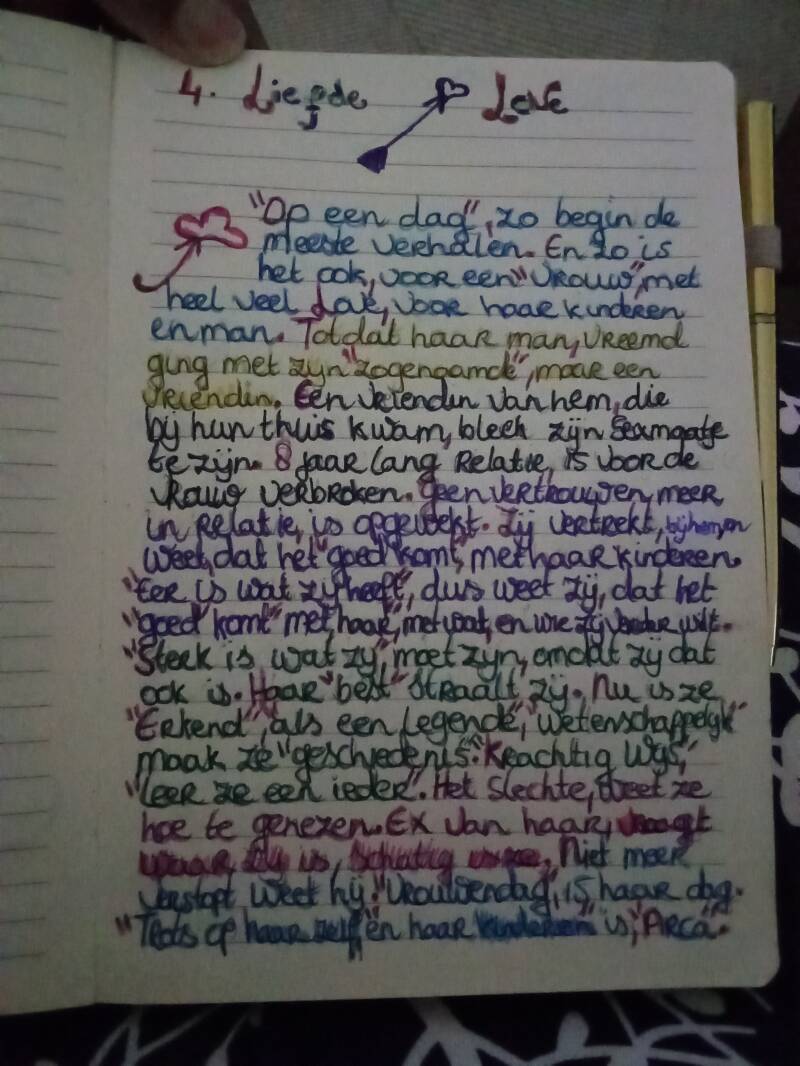 4. Liefde Love
"Op een dag", zo begin de
meeste verhalen. En zo is
het ook, voor een "vrouw", met
heel veel Love, voor haar kinderen
en man. Totdat haar man, vreemd
ging met zijn "zogenaamde", maar een
vriendin. Een vriendin van hem, die
bij hun thuis kwam, bleek zijn
te zijn. 8 jaar lang Relatie, is voor de
vrouw verbroken. Geen vertrouwen, meer
in Relatie, is opgewekt. Zij vertrekt, bij hem, en
weet, dat het "goed komt", met haar kinderen.
"Eer is wat zij heeft", dus weet zij, dat het
"goed komt" met, haar, met wat, en wie zij verder wilt.
"Sterk is wat zij", moet zijn, omdat zij dat
ook is. Haar "best" straalt zij. Nu is ze
"Erkend", als een Legende", "Wetenschappelijk"
maak ze "geschiedenis". Krachtig Wijs,
"Leer ze een ieder". Het slechte, weet ze
hoe te genezen. Ex van haar, vraagt
waar zij is, Niet meer
verstopt weet hij. "Vrouwendag", is haar dag.
"Trots op haar zelf, en haar kinderen" is, "Arca".